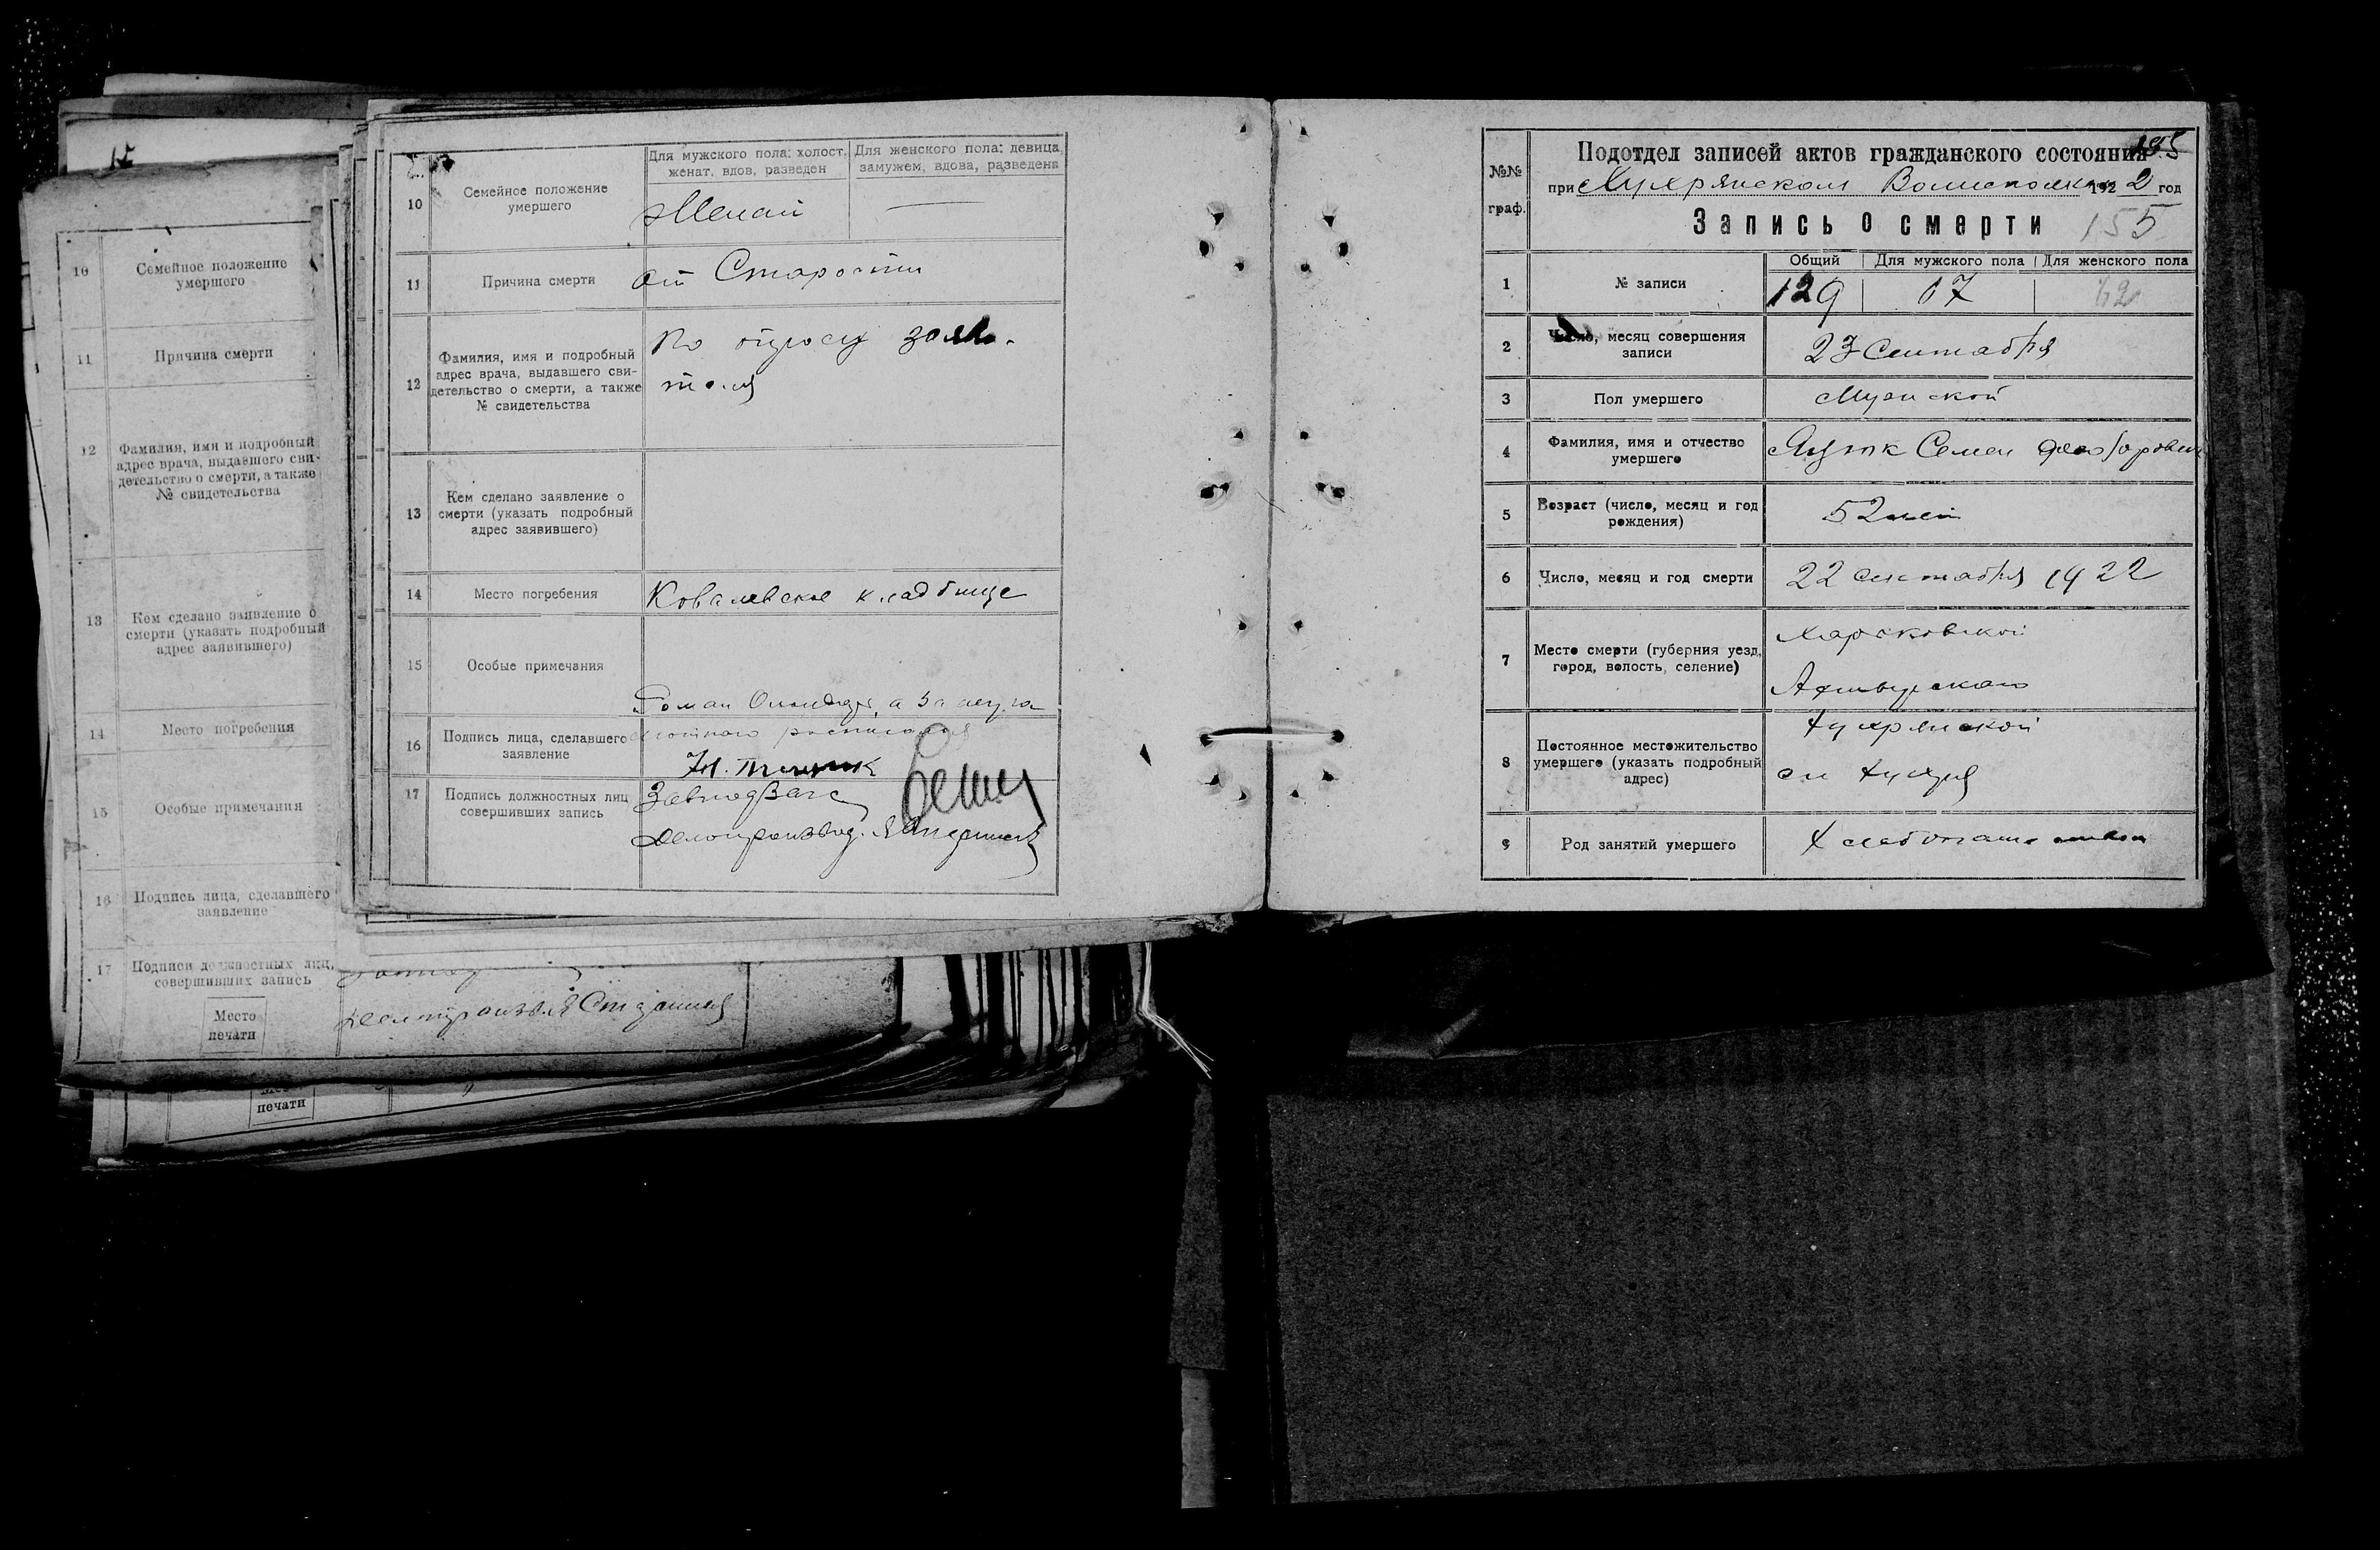 10
Семейное положение
умершего
11
Причина смерти
12
Фамилия, имя и подробный
адрес врача, выдавшего сви-
детельство о смерти, а также
№ свидетельства
13
Кем сделано заявление о
смерти (указать подробный
адрес заявившего)
14
Место погребения
15
Особые примечания
16
Подпись лица, сделавшего
заявление
17
Подписи должностных лиц,
совершивших запись
Место
печати
печати
10
Семейное положение
умершего
Для мужского пола: холост,
женат, вдов, разведен
Для женского пола: девица,
замужем, вдова, разведена
Женат
11
Причина смерти
от Старости
12
Фамилия, имя и подробный
адрес врача, выдавшего сви-
детельство о смерти, а также
№ свидетельства
По опросу заяви-
теля
13
Кем сделано заявление о
смерти (указать подробный
адрес заявившего)
14
Место погребения
Ковалевское кладбище
15
Особые примечания
Роман а за него
16
Подпись лица, сделавшего
заявление
17
Подпись должностных лиц
совершивших запись
Завподзагс
Делопроизвод.
№№
граф.
Подотдел записей актов гражданского состояния
155
при Хухрянском Волисполкоме 1922 год
Запись о смерти
155
1
№ записи
Общий
Для мужского пола
Для женского пола
129
67
62
2
Число, месяц совершения
записи
23 Сентября
3
Пол умершего
Мужской
4
Фамилия, имя и отчество
умершего
Семен
5
Возраст (число, месяц и год
рождения)
52 лет
6
Число, месяц и год смерти
22 сентября 1922
7
Место смерти (губерния уезд,
город, волость, селение)
Харьковской
Ахтырского
8
Постоянное местожительство
умершего (указать подробный
адрес)
Хухрянской
сл Хухря
9
Род занятий умершего
Хлебопашество